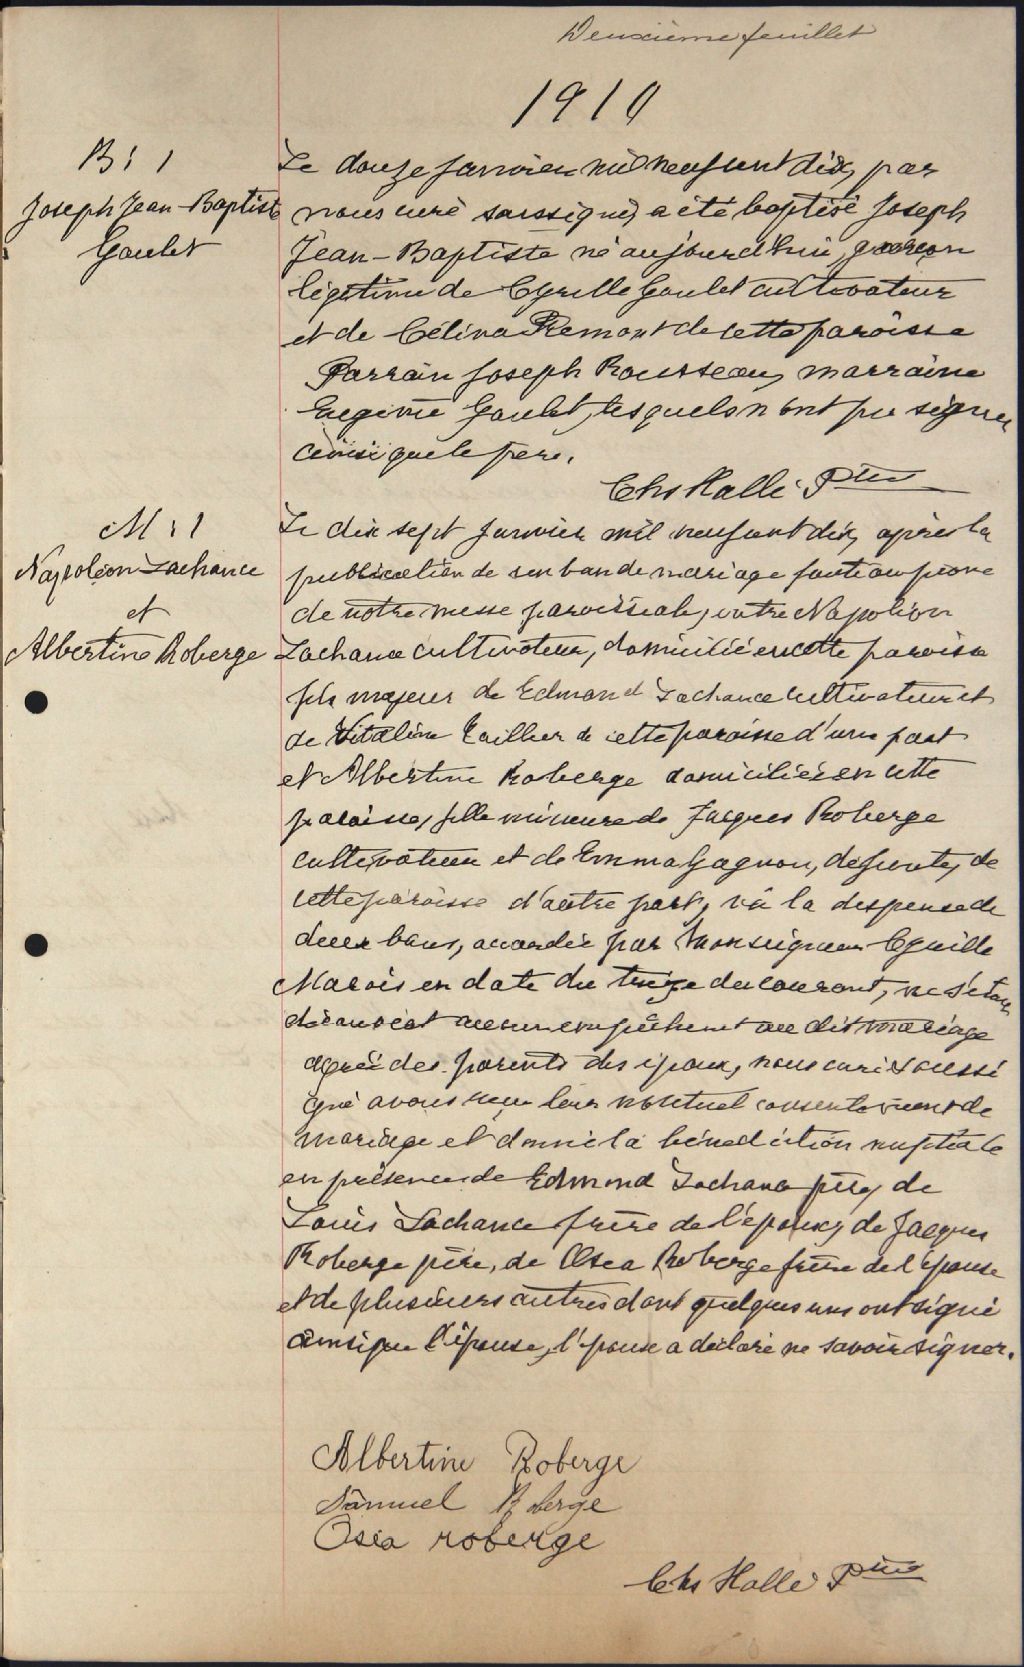 Deuxième feuillet
1910
B : 1
Joseph Jean-Baptiste
Goulet
Le douze janvier mil neuf cent dix, par
nous curé soussigné, a été baptisé Joseph
Jean-Baptiste né aujourd'hui, garçon
légitime de Cyrille Goulet cultivateur
et de Célina de cette paroisse
Parrain Joseph Rousseau, marraine
Goulet, lesquels n'ont pu signer
ainsi que le père.
Chs Hallé Ptre
M : 1
Napoléon Lachance
et
Albertine Roberge
Le dix sept janvier mil neuf cent dix, après la
publication de un ban de mariage faite au prone
de notre messe paroissiale, entre Napoléon
Lachance cultivateur, domicilié en cette paroisse
fils majeur de Edmond Lachance cultivateur et
de Vitaline de cette paroisse d'une part
et Albertine Roberge domiciliée en cette
paroisse, fille mineure de Jacques Roberge
cultivateur et de Emma Gagnon, defunte, de
cette paroisse d'autre part, vu la dispense de
deux bans, accordée par Monseigneur Cyrille
Marois en date du treize du courant, ne s'étant
découvert aucun empêchement au dit mariage
agréé des parents des époux, nous curé soussi
gné avons reçu leur mutuel consentement de
mariage et donné la bénédiction nuptiale
en présence de Edmond Lachance père, de
Louis Lachance frère de l'époux, de Jacques
Roberge père, de Oséa Roberge frère de l'épouse
et de plusieurs autres dont quelques uns ont signé
ainsi que l'épouse, l'époux a déclaré ne savoir signer.
Albertine Roberge
Samuel Roberge
Oséa roberge
Chs Hallé Ptre